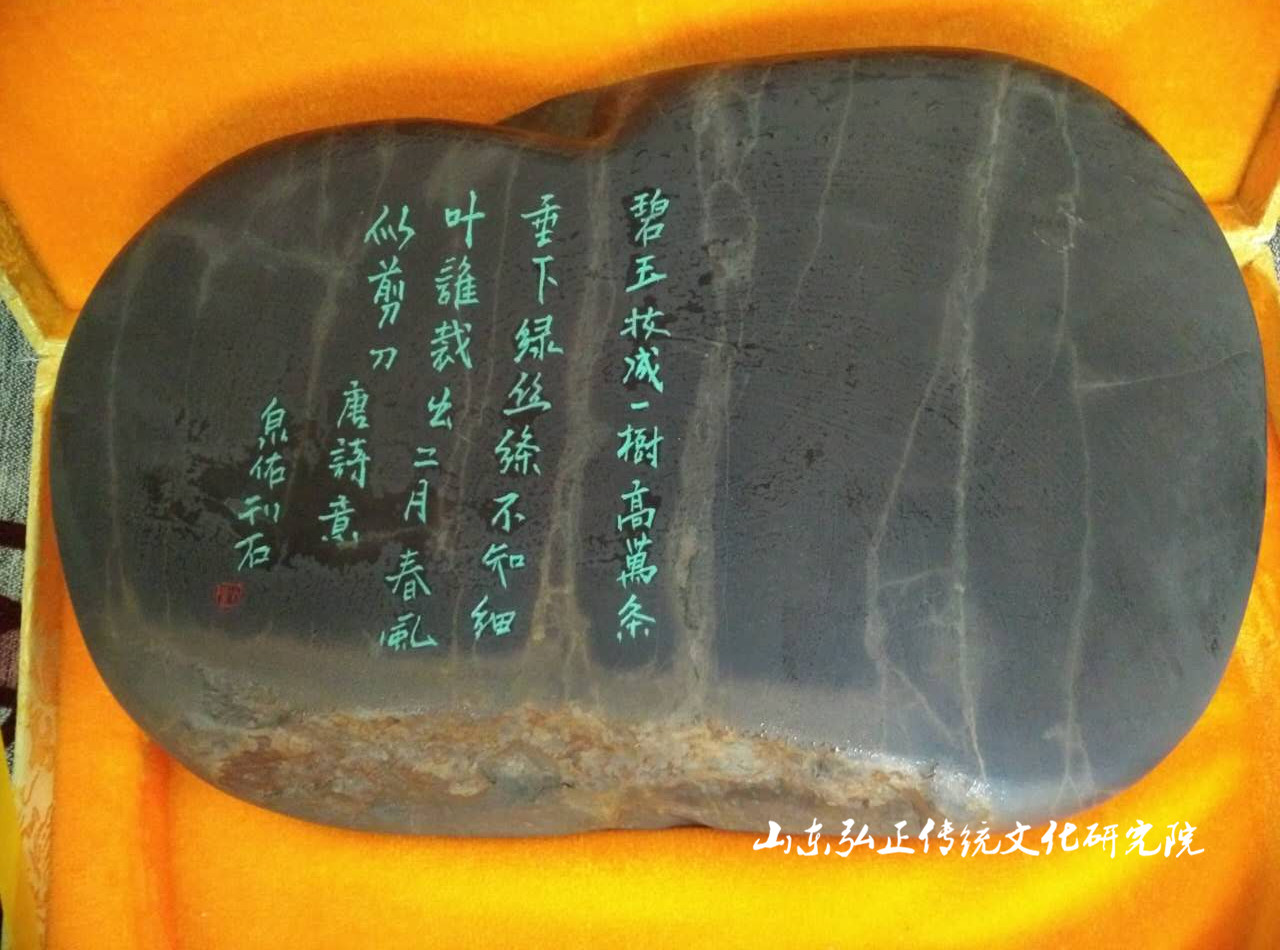 碧玉妆成一樹高萬条
垂下绿丝絛不知细
叶誰裁出二月春風
似剪刀
唐詩意
泉佑刊石
山东弘正传统文化研究院